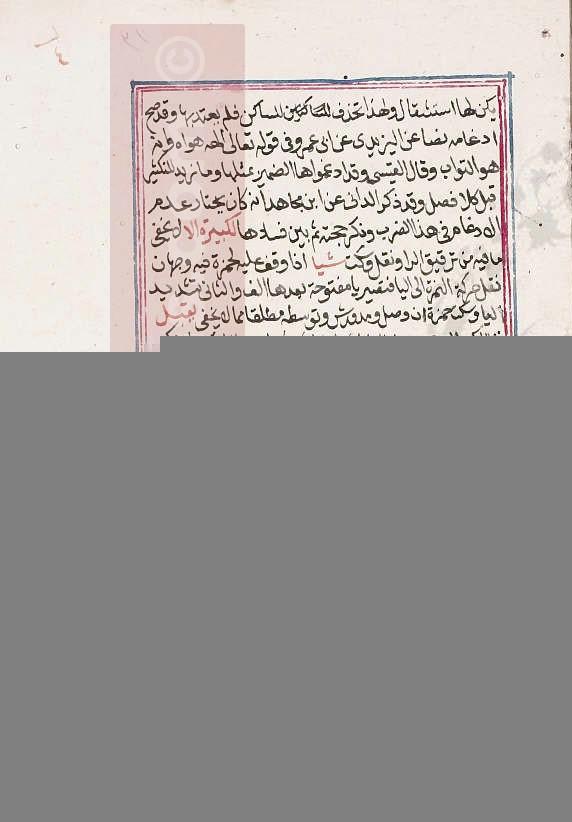 يكن لها استثقال ولهذا تحذف للساكن فلم يعتد بها وقد صح
ادغامه نصا عن اليزيدى عن ابى عمرو فى قوله تعالى الهه هواه وانه
هو التواب وقال القيسى وقد ادغموا ها الضمير مثلها وما نريد للتكثير
قبل كلا فصل وقد ذكر الدانى عن ابن مجاهد انه كان يختار عدم
الادغام فى هذا الضرب وذكر حجته ثم بين فسادها لكبيرة الا لا يخفى
ما فيه من ترقيق الرا ونقل وسكت شيا اذا وقف عليه لحمزة فيه وجهان
نقل حركة الهمزة الى اليا فتصير يا مفتوحة بعدها الف والثانى تشديد
اليا وسكت حمزة ان وصل ومد ورش وتوسطه مطلقا مما لا يخفى